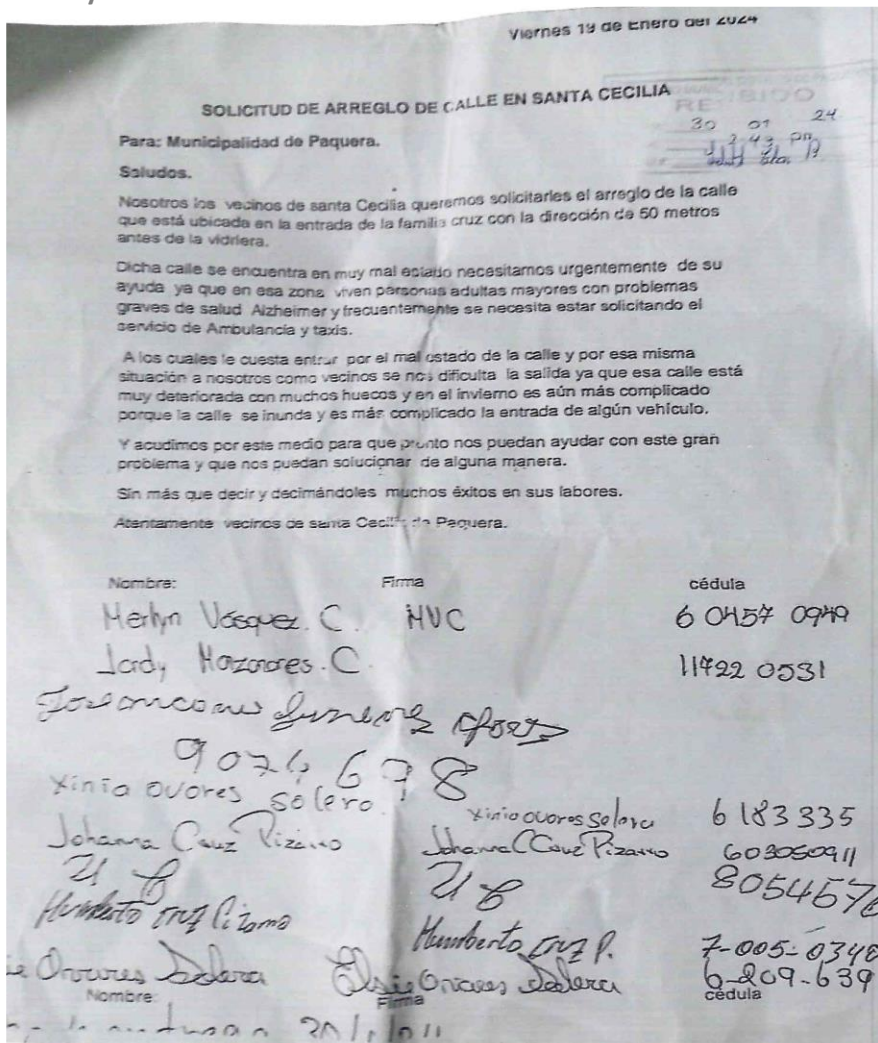 Viernes 19 de Enero del 2024
SOLICITUD DE ARREGLO DE CALLE EN SANTA CECILIA
RECIBIDO
30 01 24
Para: Municipalidad de Paquera.
2:43 pm
Saludos.
Nosotros los vecinos de santa Cecilia queremos solicitarles el arreglo de la calle
que está ubicada en la entrada de la familia cruz con la dirección de 50 metros
antes de la vidriera.
Dicha calle se encuentra en muy mal estado necesitamos urgentemente de su
ayuda ya que en esa zona viven personas adultas mayores con problemas
graves de salud Alzheimer y frecuentemente se necesita estar solicitando el
servicio de Ambulancia y taxis.
A los cuales le cuesta entrar por el mal estado de la calle y por esa misma
situación a nosotros como vecinos se nos dificulta la salida ya que esa calle está
muy deteriorada con muchos huecos y en el invierno es aún más complicado
porque la calle se inunda y es más complicado la entrada de algún vehículo.
Y acudimos por este medio para que pronto nos puedan ayudar con este gran
problema y que nos puedan solucionar de alguna manera.
Sin más que decir y decimándoles muchos éxitos en sus labores.
Atentamente vecinos de santa Cecilia de Paquera.
Nombre: Firma cédula
Merlyn Vásquez. C. MVC 6 0457 0949
Jardy C. 11722 0531
xinia ovores solero xinia ovores Solera 6 183 335
Johanna Cruz Pizarro Johanna C Cruz Pizarro 603050911
Humberto cruz Humberto cruz P. 7-005-0348
Solera Elsie Solera 6-209-639
Nombre: Firma cédula